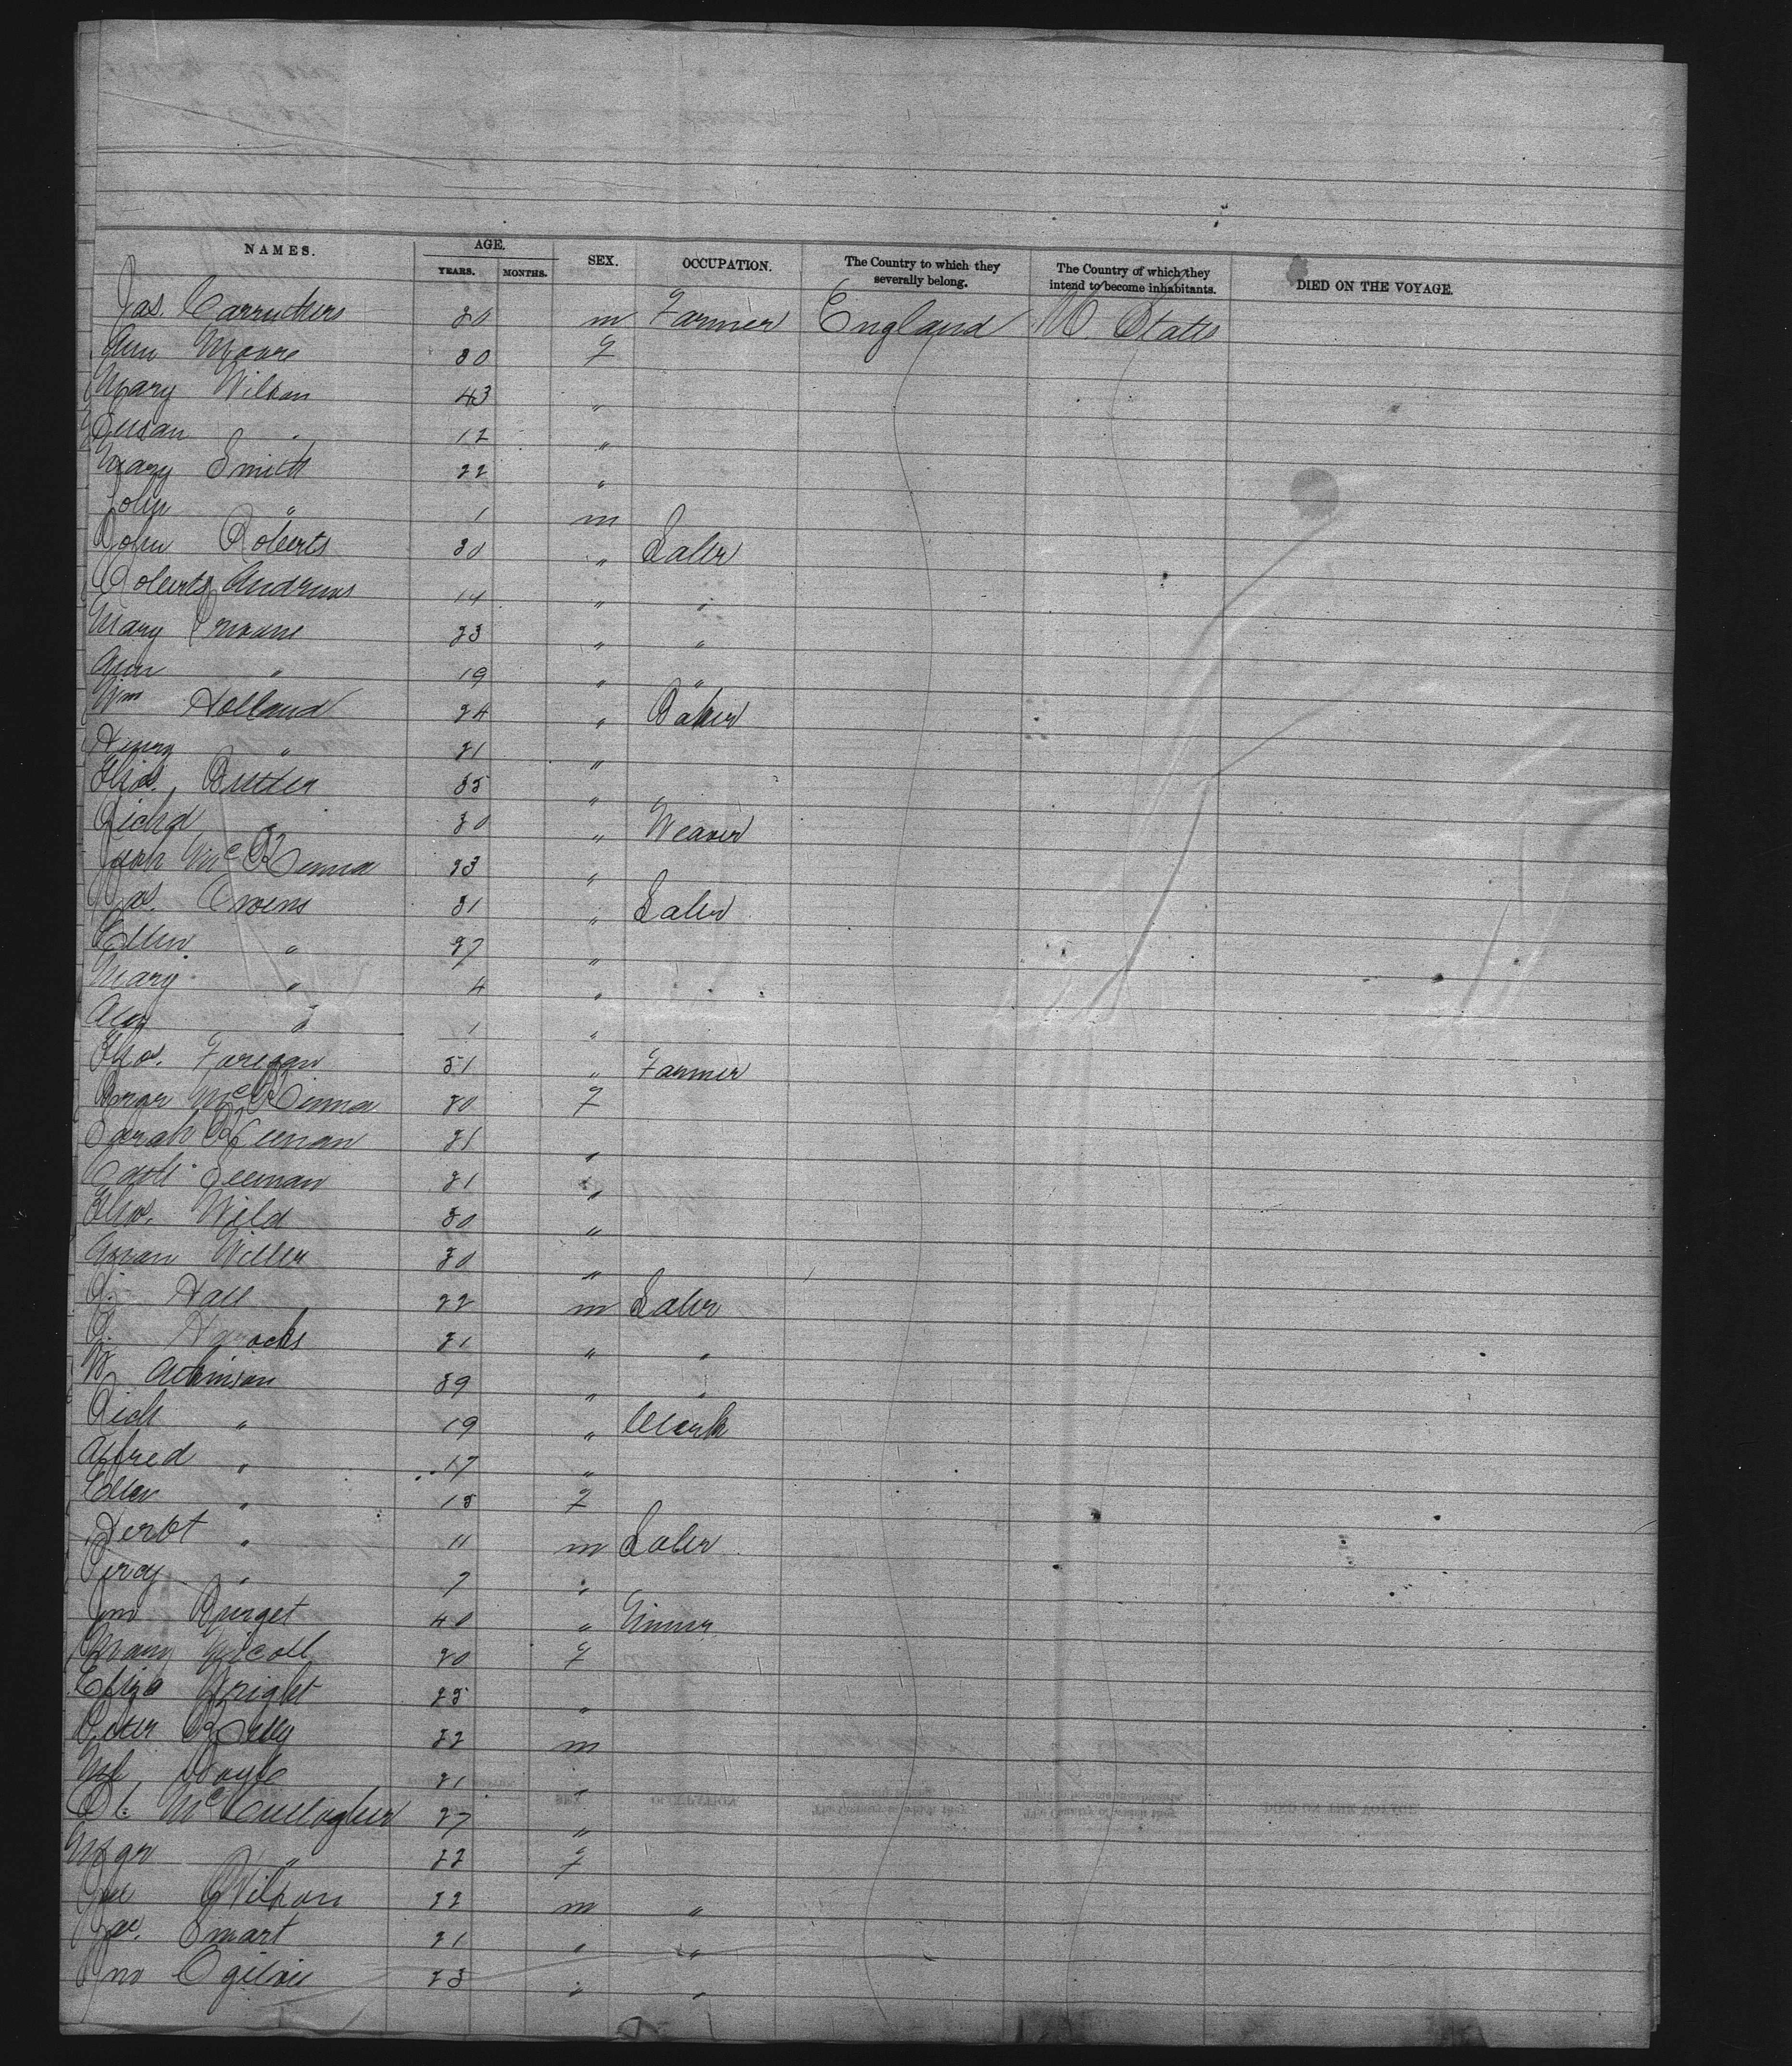 NAMES. AGE. SEX. OCCUPATION. The Country to which they severally belong. The Country of which they intend to become inhabitants. DIED ON THE VOYAGE.
YEARS. MONTHS.
Jas. Carruthers 30 m Farmer England U. States
Ann Moore 30 F
Mary Wilson 43 "
Susan " 12 "
Mary Smith 22 "
John " 1 m
John Roberts 30 " Labr
Roberts Andrews 14 " "
Mary 23 " "
Ann " 19 " "
Wm Holland 24 " Baker
Henry " 21 "
Thos. Butler 35 "
Richd " 30 " Weaver
McKenna 23 "
Jas. Owens 31 " Labr
Ellen " 27 "
Mary " 4 "
" 1 "
Thos. 51 " Farmer
Mgr McKenna 50 F
Sarah Keenan 21 "
Cath Leenan 21 "
Thos. Wild 30 "
Miller 30 "
Hall 22 m Labr
Horrocks 21 " "
W Atkinson 39 " "
Rich " 19 " Clerk
Alfred " 17 "
Ellen " 15 F
Herbt " 11 m Labr
Percy " 7 "
Jno 40 " Miner
Mary Nicoll 20 F
Eliza Wright 25 "
Peter Kelly 22 m
Ml Doyle 21 "
McCullagher 27 "
Mgr " 22 F
Wilson 22 m "
Jas. Smart 21 " "
Jno Ogilvie 23 " "